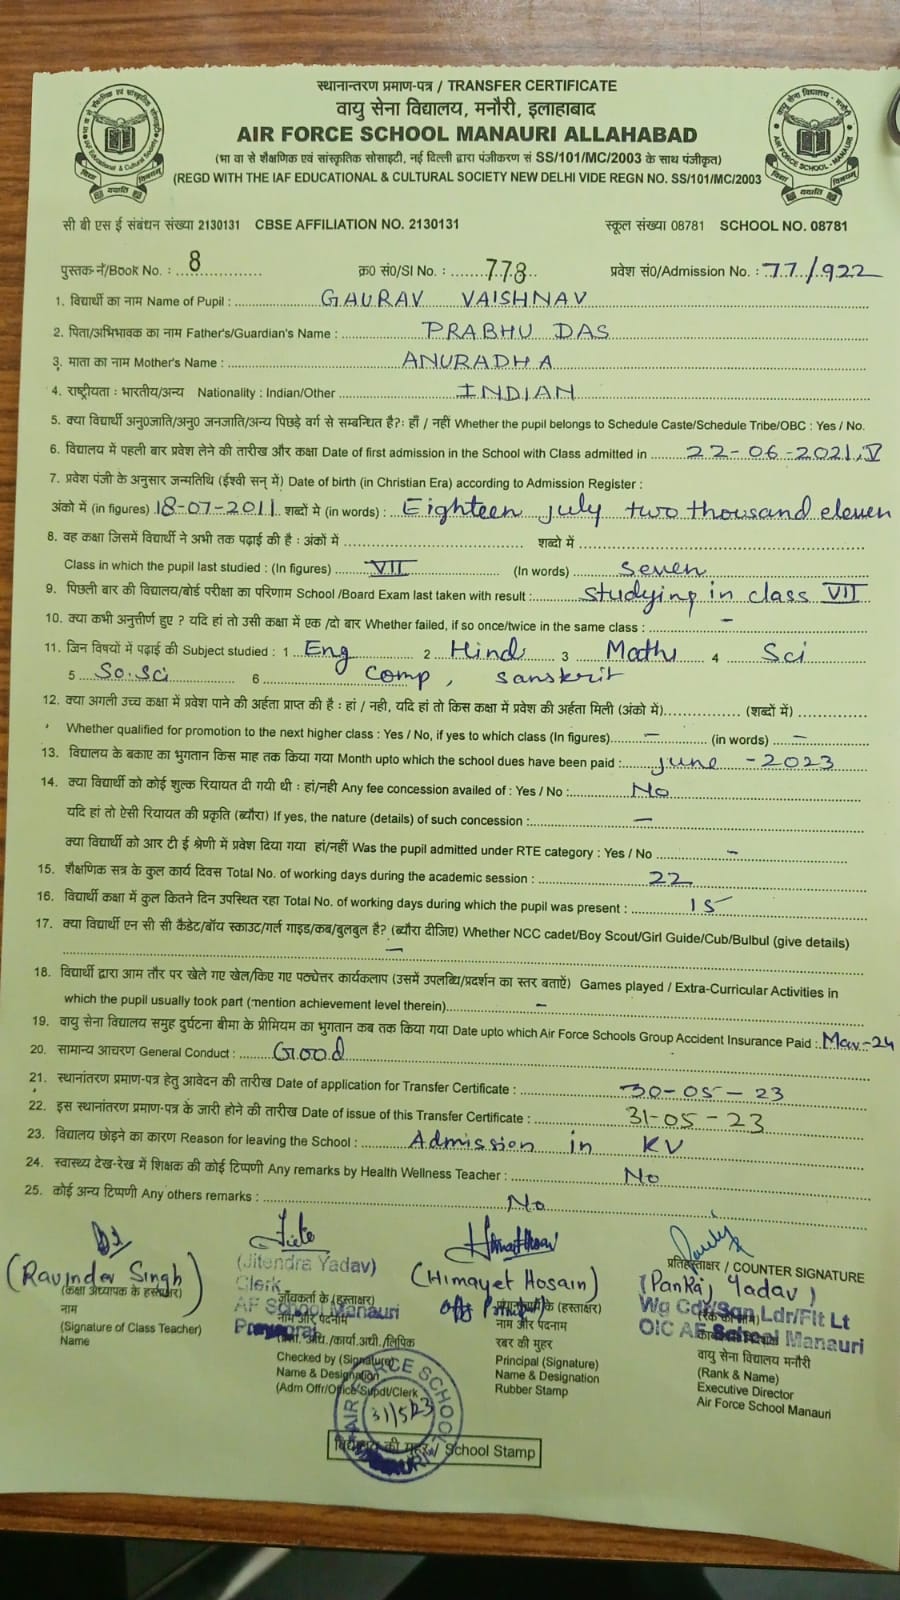 स्थानान्तरण प्रमाण-पत्र / TRANSFER CERTIFICATE
वायु सेना विद्यालय, मनौरी, इलाहाबाद
AIR FORCE SCHOOL MANAURI ALLAHABAD
(भा वा से शैक्षणिक एवं सांस्कृतिक सोसाइटी, नई दिल्ली द्वारा पंजीकरण सं SS/101/MC/2003 के साथ पंजीकृत)
(REGD WITH THE IAF EDUCATIONAL & CULTURAL SOCIETY NEW DELHI VIDE REGN NO. SS/101/MC/2003
सी बी एस ई संबंधन संख्या 2130131 CBSE AFFILIATION NO. 2130131 स्कूल संख्या 08781 SCHOOL NO. 08781
पुस्तक नं/Book No. : 8 क्र० सं०/SI No. : 778 प्रवेश सं०/Admission No. : 77/922
1. विद्यार्थी का नाम Name of Pupil : GAURAV VAISHNAV
2. पिता/अभिभावक का नाम Father's/Guardian's Name : PRABHU DAS
3. माता का नाम Mother's Name : ANURADHA
4. राष्ट्रीयता : भारतीय/अन्य Nationality : Indian/Other INDIAN
5. क्या विद्यार्थी अनु०जाति/अनु० जनजाति/अन्य पिछड़े वर्ग से सम्बन्धित है?: हाँ / नहीं Whether the pupil belongs to Schedule Caste/Schedule Tribe/OBC : Yes / No.
6. विद्यालय में पहली बार प्रवेश लेने की तारीख और कक्षा Date of first admission in the School with Class admitted in 22-06-2021, V
7. प्रवेश पंजी के अनुसार जन्मतिथि (ईश्वी सन् में) Date of birth (in Christian Era) according to Admission Register :
अंको में (in figures) 18-07-2011 शब्दों में (in words) : Eighteen july two thousand eleven
8. वह कक्षा जिसमें विद्यार्थी ने अभी तक पढ़ाई की है : अंकों में शब्दो में
Class in which the pupil last studied : (In figures) VII (In words) seven
9. पिछली बार की विद्यालय/बोर्ड परीक्षा का परिणाम School /Board Exam last taken with result : studying in class VII
10. क्या कभी अनुत्तीर्ण हुए ? यदि हां तो उसी कक्षा में एक /दो बार Whether failed, if so once/twice in the same class : -
11. जिन विषयों में पढ़ाई की Subject studied : 1 Eng 2 Hindi 3 Maths 4 Sci
5 So.Sci 6 Comp, Sanskrit
12. क्या अगली उच्च कक्षा में प्रवेश पाने की अर्हता प्राप्त की है : हां / नही, यदि हां तो किस कक्षा में प्रवेश की अर्हता मिली (अंको में) (शब्दों में)
Whether qualified for promotion to the next higher class : Yes / No, if yes to which class (In figures) - (in words) -
13. विद्यालय के बकाए का भुगतान किस माह तक किया गया Month upto which the school dues have been paid : june - 2023
14. क्या विद्यार्थी को कोई शुल्क रियायत दी गयी थी : हां/नही Any fee concession availed of : Yes / No : No
यदि हां तो ऐसी रियायत की प्रकृति (ब्यौरा) If yes, the nature (details) of such concession : -
क्या विद्यार्थी को आर टी ई श्रेणी में प्रवेश दिया गया हां/नहीं Was the pupil admitted under RTE category : Yes / No -
15. शैक्षणिक सत्र के कुल कार्य दिवस Total No. of working days during the academic session : 22
16. विद्यार्थी कक्षा में कुल कितने दिन उपस्थित रहा Total No. of working days during which the pupil was present : 15
17. क्या विद्यार्थी एन सी सी कैडेट/बॉय स्काउट/गर्ल गाइड/कब/बुलबुल है? (ब्यौरा दीजिए) Whether NCC cadet/Boy Scout/Girl Guide/Cub/Bulbul (give details)
-
18. विद्यार्थी द्वारा आम तौर पर खेले गए खेल/किए गए पाठ्येत्तर कार्यकलाप (उसमें उपलब्धि/प्रदर्शन का स्तर बताऐं) Games played / Extra-Curricular Activities in
which the pupil usually took part (mention achievement level therein) -
19. वायु सेना विद्यालय समुह दुर्घटना बीमा के प्रीमियम का भुगतान कब तक किया गया Date upto which Air Force Schools Group Accident Insurance Paid : Mar-24
20. सामान्य आचरण General Conduct : Good
21. स्थानांतरण प्रमाण-पत्र हेतु आवेदन की तारीख Date of application for Transfer Certificate : 30-05-23
22. इस स्थानांतरण प्रमाण-पत्र के जारी होने की तारीख Date of issue of this Transfer Certificate : 31-05-23
23. विद्यालय छोड़ने का कारण Reason for leaving the School : Admission in KV
24. स्वास्थ्य देख-रेख में शिक्षक की कोई टिप्पणी Any remarks by Health Wellness Teacher : No
25. कोई अन्य टिप्पणी Any others remarks : No
(Ravinder Singh)
(कक्षा अध्यापक के हस्ताक्षर)
नाम
(Signature of Class Teacher)
Name
(Jitendra Yadav)
Clerk
जाँचकर्ता के (हस्ताक्षर)
AF School Manauri
नाम और पदनाम
Checked by (Signature)
Name & Designation
(Adm Offr/Office Supdt/Clerk
(Himayet Hosain)
नाम और पदनाम
रबर की मुहर
Principal (Signature)
Name & Designation
Rubber Stamp
प्रतिहस्ताक्षर / COUNTER SIGNATURE
(Pankaj Yadav)
Wg Cdr/Sqn Ldr/Flt Lt
OIC AF School Manauri
वायु सेना विद्यालय मनौरी
(Rank & Name)
Executive Director
Air Force School Manauri
AIR FORCE SCHOOL
31/5/23
विद्यालय की मुहर / School Stamp